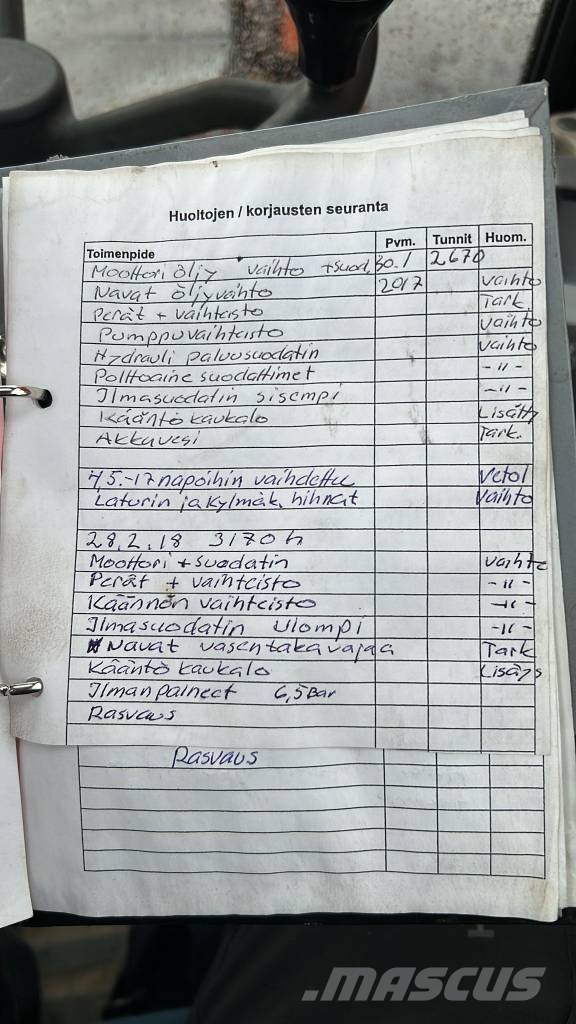 Huoltojen / korjausten seuranta
Toimenpide Pvm. Tunnit Huom.
Moottori öljy vaihto +suod. 30.1 2670
Navat öljyvaihto 2017 vaihto
Perät + vaihteisto Tark.
Pumppuvaihteisto vaihto
Hydrauli paluusuodatin vaihto
Polttoaine suodattimet -"-
Ilmasuodatin sisempi -"-
Kääntö kaukalo Lisätty
Akkuvesi Tark.
napoihin vaihdettu Vetol
Laturin ja kylmäk. hihnat Vaihto
28.2.18 3170 h
Moottori + suodatin vaihto
Perät + vaihteisto -"-
Käännön vaihteisto -"-
Ilmasuodatin ulompi -"-
Navat vasen taka vajaa Tark
Kääntö kaukalo Lisäys
Ilmanpaineet 6,5 Bar
Rasvaus
Rasvaus
.MASCUS